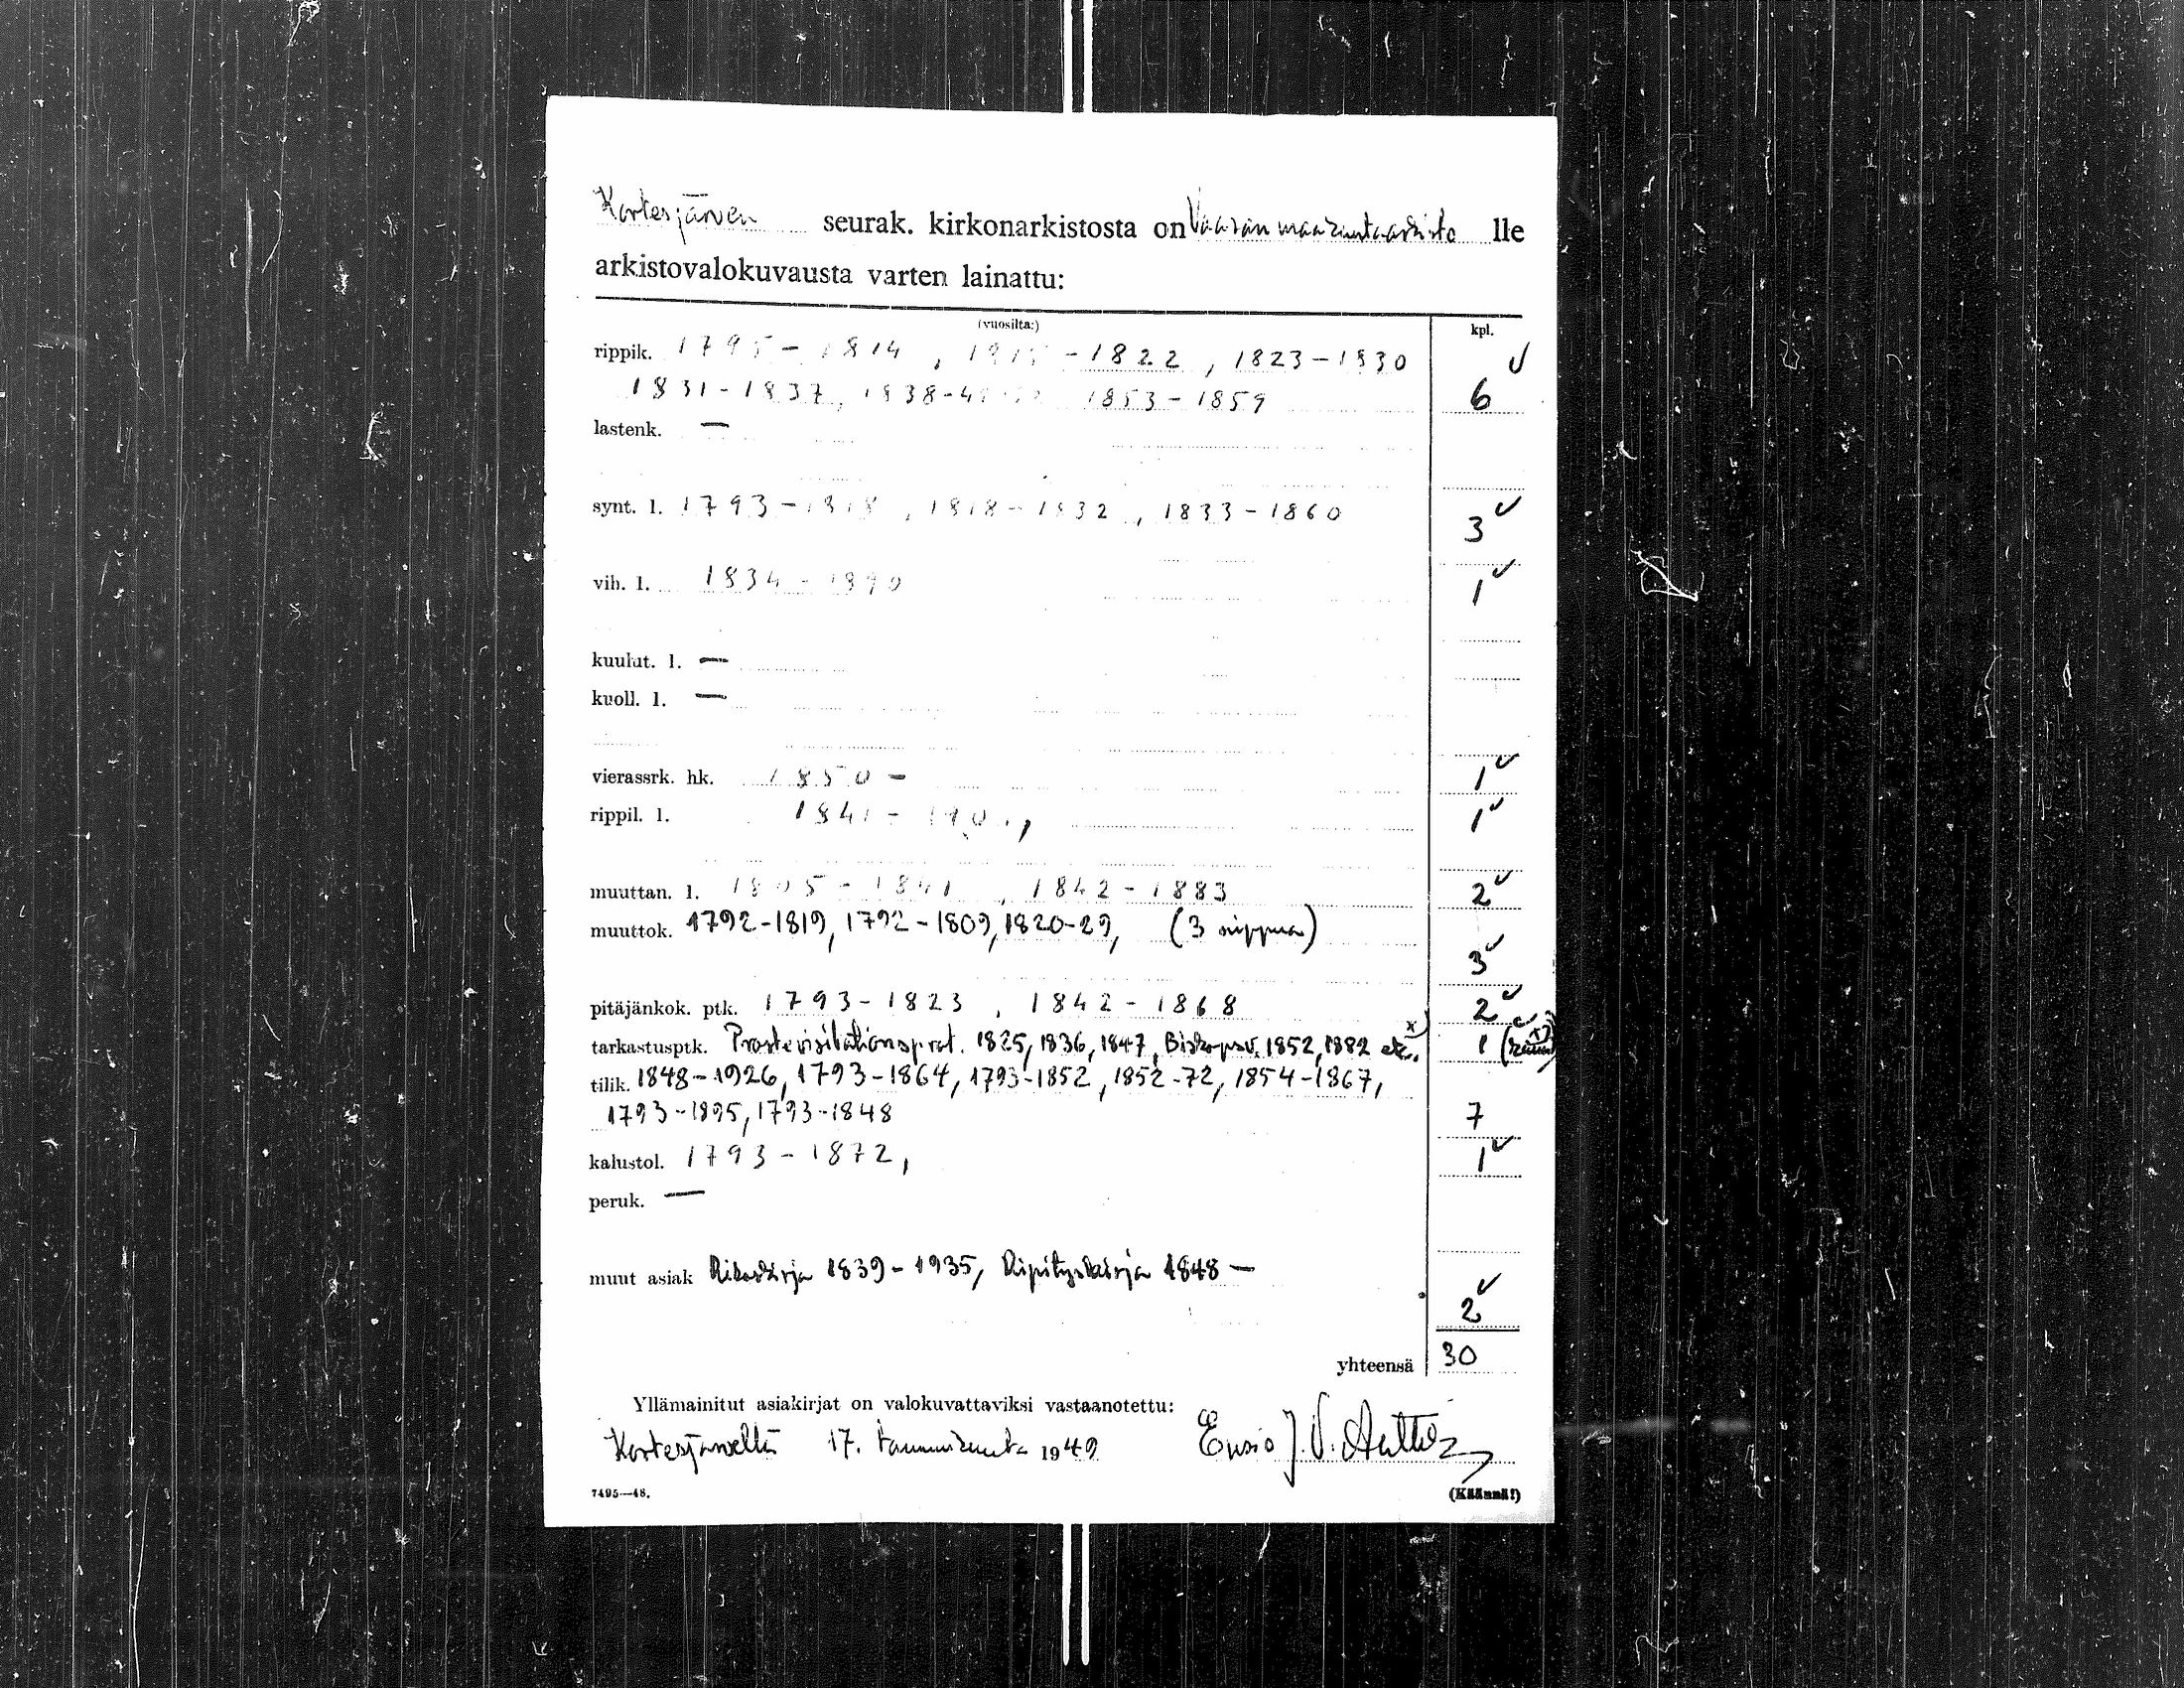 Kortesjärven seurak. kirkonarkistosta on Vaasan maakuntaarkisto lle
arkistovalokuvausta varten lainattu:
(vuosilta:) kpl.
rippik. 1795 - 1814 , - 1822 , 1823 - 1830 ✓
1831 - 1837, 1838 - 1853 - 1859 6
lastenk. —
synt. l. 1793 - 1818 , 1818 - 1832 , 1833 - 1860 3 ✓
vih. l. 1834 - 1890 1 ✓
kuulut. l. —
kuoll. l. —
vierassrk. hk. 1850 - 1 ✓
rippil. l. 1841 - 1 ✓
muuttan. l. 1805 - 1841 , 1842 - 1883 2 ✓
muuttok. 1792-1819, 1792-1809, 1820-29, (3 nippua)
3 ✓
pitäjänkok. ptk. 1793 - 1823 , 1842 - 1868 2 ✓
tarkastusptk. Prostevisitationsprot. 1825, 1836, 1847, Biskopsv. 1852, 1882 etc. x) 1
tilik. 1848-1926, 1793-1864, 1793-1852, 1852-72, 1854-1867,
1793-1895, 1793-1848 7
kalustol. 1793 - 1872, 1 ✓
peruk. —
muut asiak Rikoskirja 1839-1935, Ripityskirja 1848 —
2 ✓
yhteensä 30
Yllämainitut asiakirjat on valokuvattaviksi vastaanotettu:
Kortesjärvellä 17. tammikuuta 1949 Ensio J. V.
7495—48. (Käännä!)